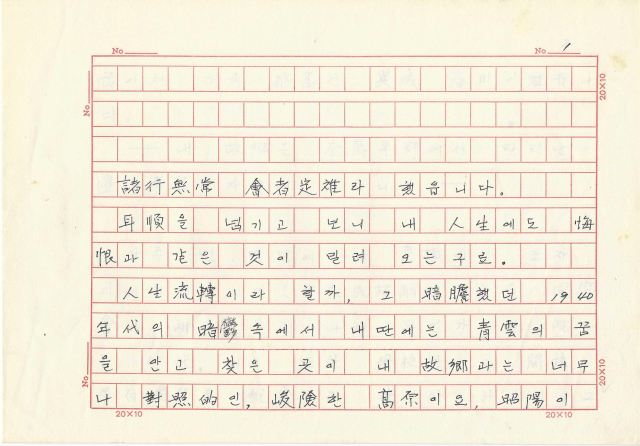 No 1
No
諸行無常 會者定離라 했읍니다.
耳順을 넘기고 보니 내 人生에도 悔
恨과 같은 것이 밀려 오는구료.
人生流轉이라 할까, 그 暗膽했던 1940
年代의 暗鬱속에서 내딴에는 青雲의 꿈
을 안고, 찾은 곳이 내 故鄕과는 너무
나 對照的인, 峻險한 高原이요, 昭陽이
No
No
20×10
20×10
20×10
20×10